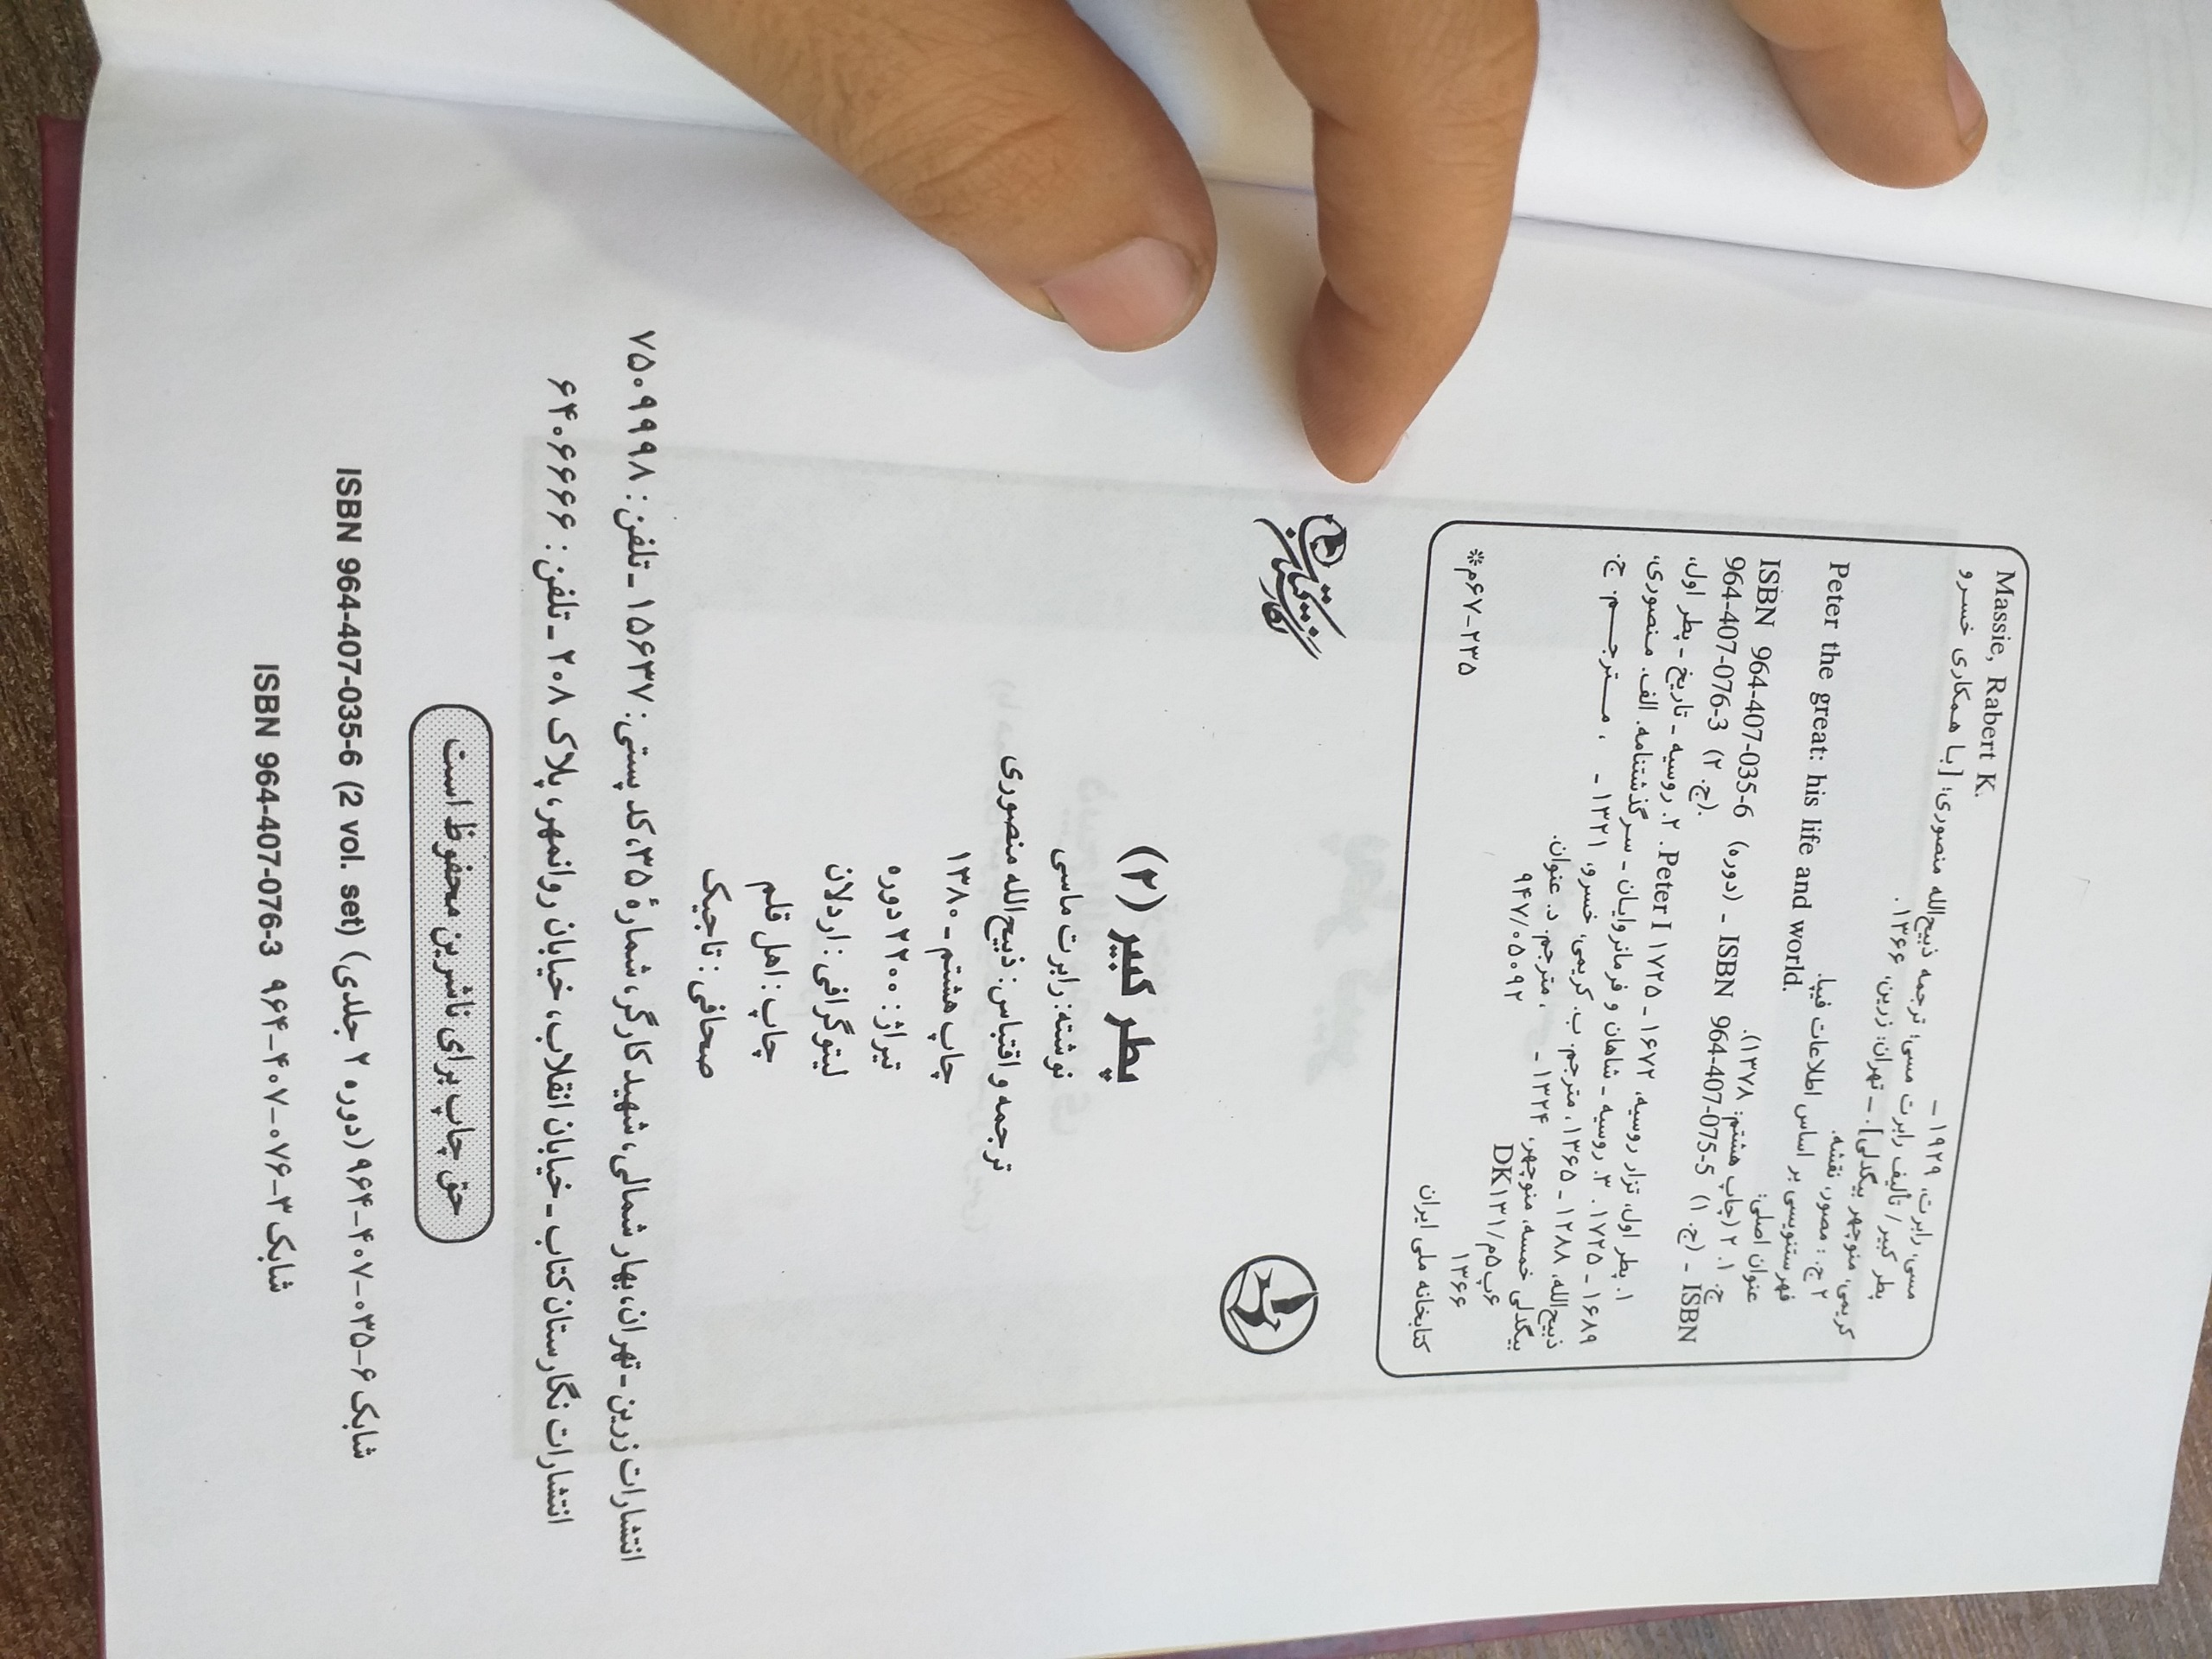 Massie, Rabert K.
مسی، رابرت، ۱۹۲۹ –
پطر کبیر / تألیف رابرت مسی؛ ترجمه ذبیح‌الله منصوری؛ [با همکاری خسرو
کریمی، منوچهر بیگدلی]. – تهران: زرین، ۱۳۶۶.
۲ ج. : مصور، نقشه.
فهرستنویسی بر اساس اطلاعات فیپا.
عنوان اصلی: Peter the great: his life and world.
ج. ۱. ۲ (چاپ هشتم: ۱۳۷۸).
ISBN 964-407-035-6 (دوره) - ISBN 964-407-075-5 (ج. ۱) - ISBN
964-407-076-3 (ج. ۲).
۱. پطر اول، تزار روسیه، ۱۶۷۲ - ۱۷۲۵ Peter I. ۲. روسیه - تاریخ - پطر اول،
۱۶۸۹ - ۱۷۲۵. ۳. روسیه - شاهان و فرمانروایان - سرگذشتنامه. الف. منصوری،
ذبیح‌الله، ۱۲۸۸ - ۱۳۶۵، مترجم. ب. کریمی، خسرو، ۱۳۲۱ - ، مترجم. ج.
بیگدلی خمسه، منوچهر، ۱۳۲۴ - ، مترجم. د. عنوان.
۶پ۵م/DK۱۳۱ ۹۴۷/۰۵۰۹۲
۱۳۶۶
کتابخانه ملی ایران م۶۷-۲۳۵*
نگارستان کتاب
پطر کبیر (۲)
نوشته: رابرت ماسی
ترجمه و اقتباس: ذبیح‌الله منصوری
چاپ هشتم - ۱۳۸۰
تیراژ: ۲۲۰۰ دوره
لیتوگرافی: اردلان
چاپ: اهل قلم
صحافی: تاجیک
انتشارات زرین - تهران، بهار شمالی، شهید کارگر، شمارهٔ ۳۵، کد پستی: ۱۵۶۳۷ - تلفن: ۷۵۰۹۹۹۸
انتشارات نگارستان کتاب - خیابان انقلاب، خیابان روانمهر، پلاک ۲۰۸ - تلفن: ۶۴۰۶۶۶۶
حق چاپ برای ناشرین محفوظ است
شابک ۶-۰۳۵-۴۰۷-۹۶۴ (دوره ۲ جلدی) ISBN 964-407-035-6 (2 vol. set)
شابک ۳-۰۷۶-۴۰۷-۹۶۴ ISBN 964-407-076-3